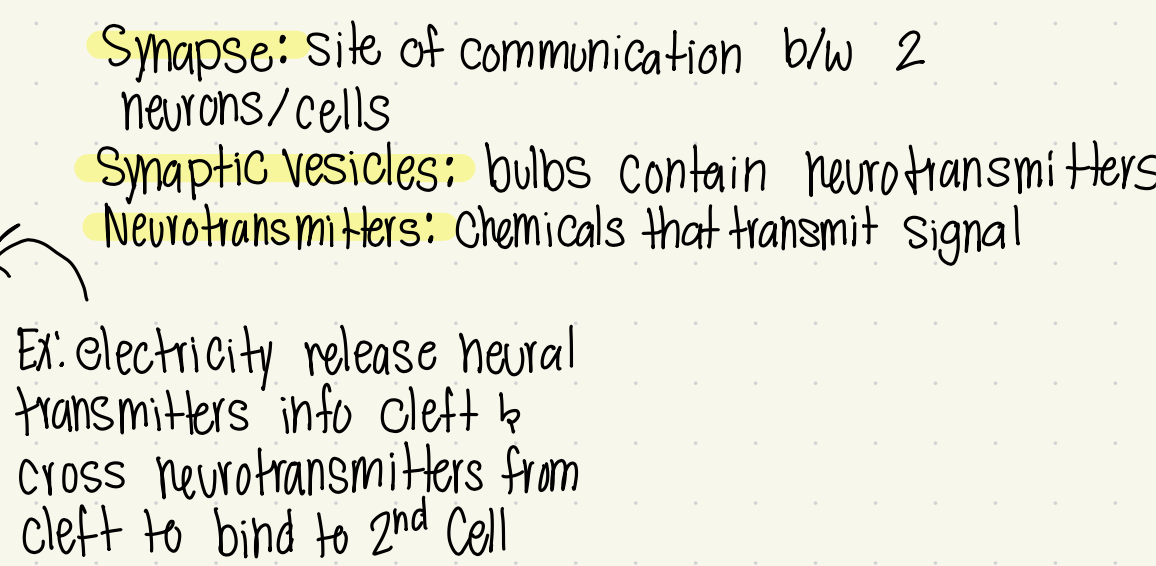 Synapse: site of communication b/w 2
neurons/cells
Synaptic vesicles: bulbs contain neurotransmitters
Neurotransmitters: Chemicals that transmit signal
Ex: electricity release neural
transmitters info cleft &
cross neurotransmitters from
cleft to bind to 2nd Cell